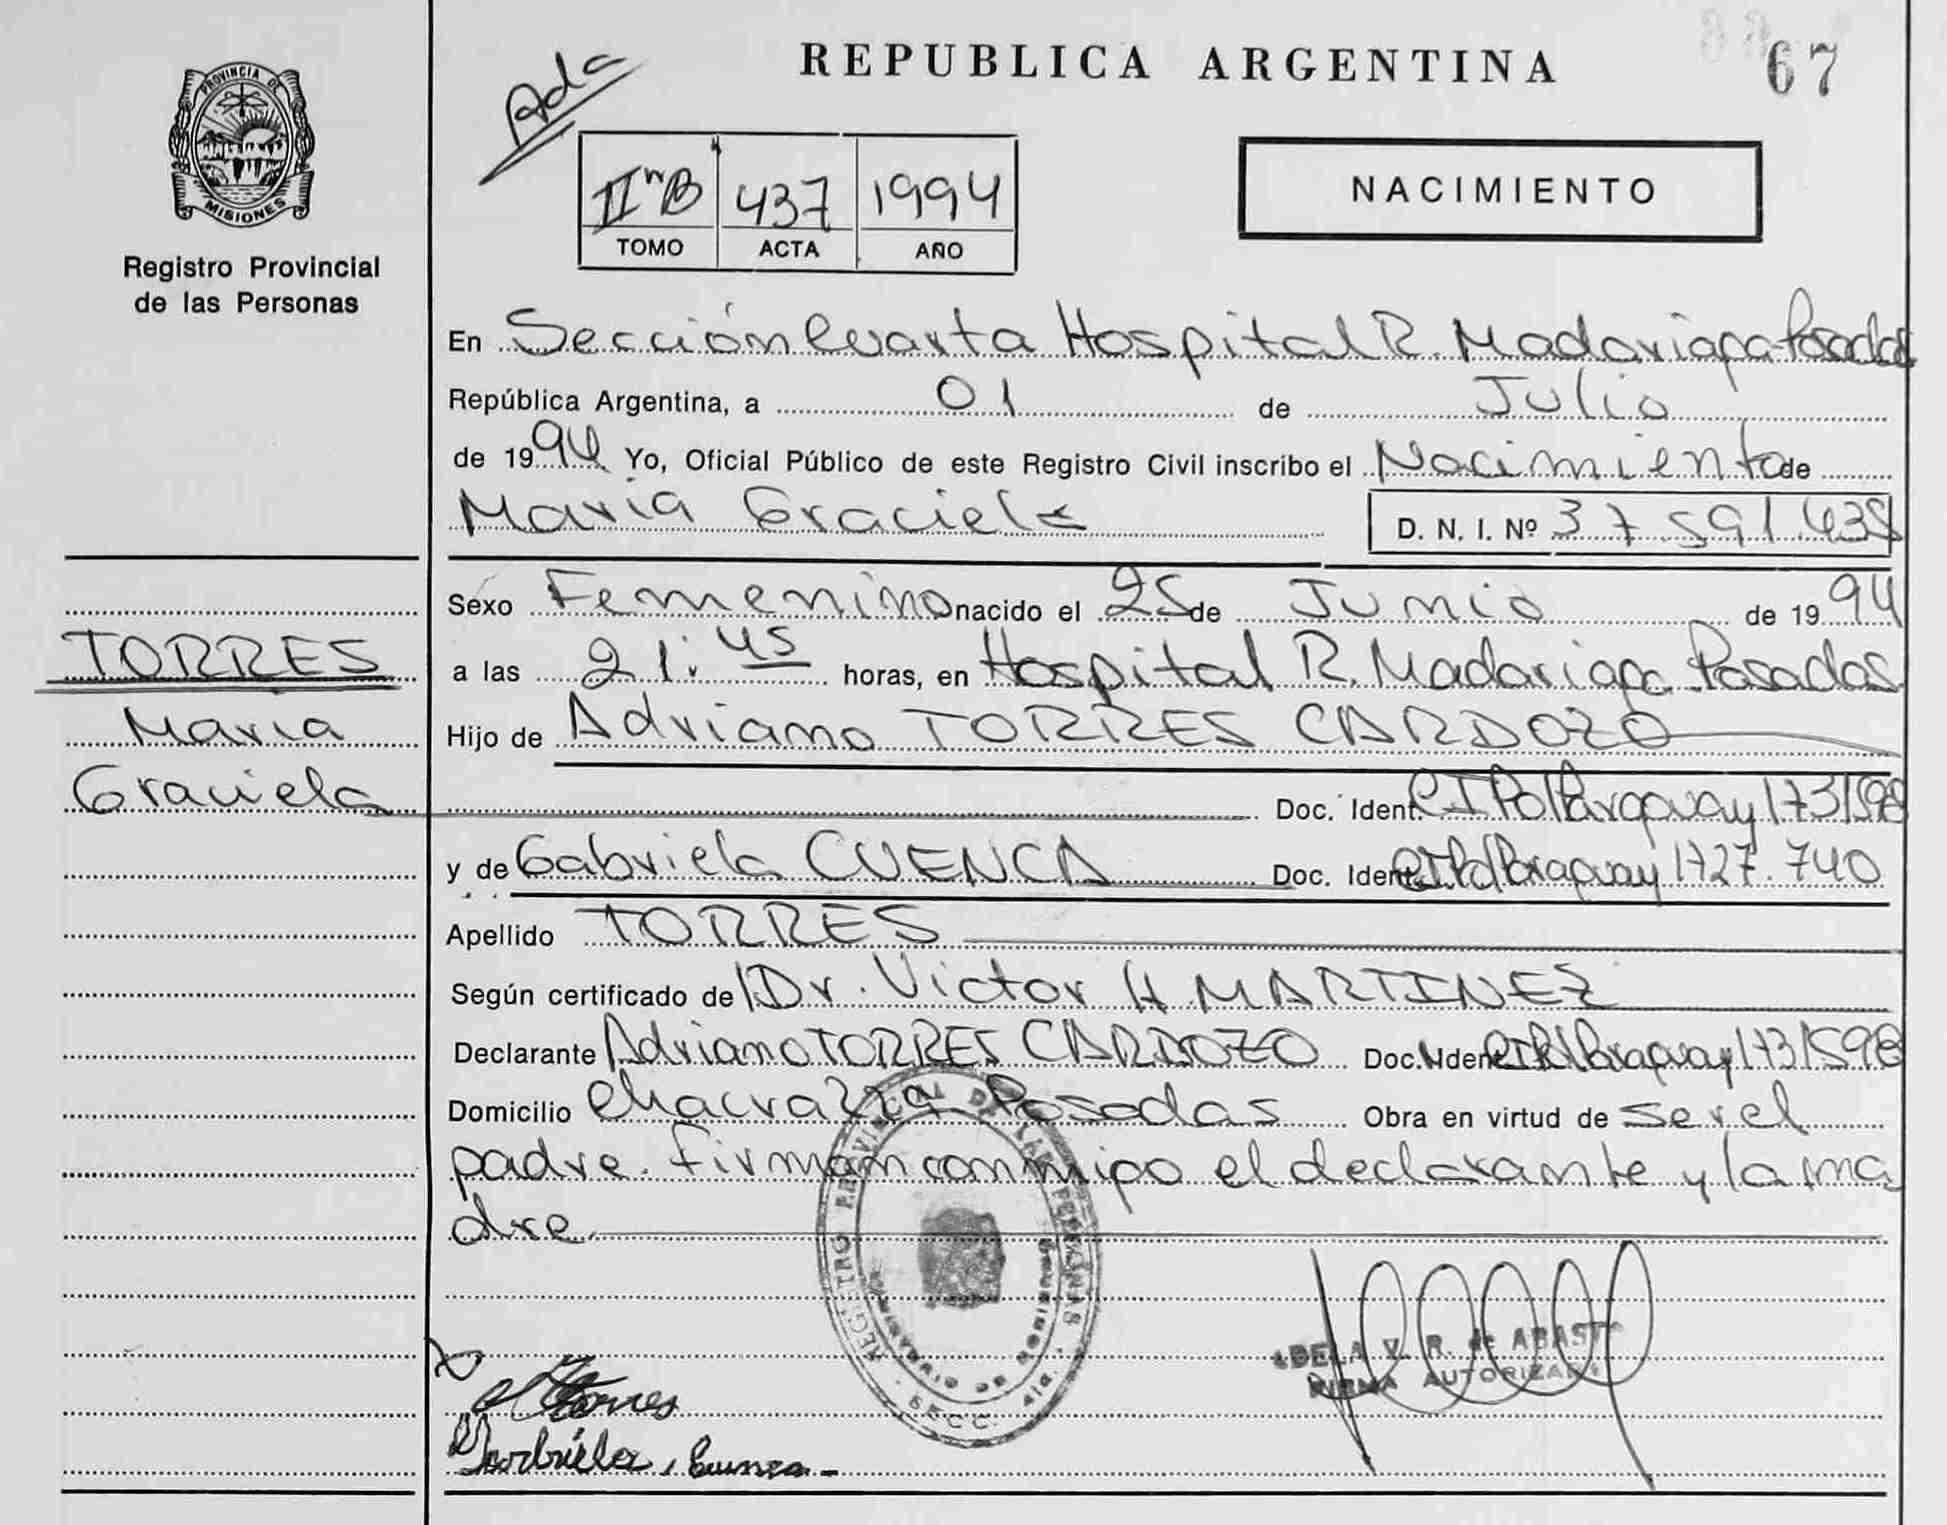 PROVINCIA DE
MISIONES
Registro Provincial
de las Personas
TORRES
Maria
Graciela
Ada
REPUBLICA ARGENTINA
67
II "B" 437 1994
TOMO ACTA AÑO
NACIMIENTO
En Sección Cuarta Hospital R. Madariaga Posadas
República Argentina, a 01 de Julio
de 1994 Yo, Oficial Público de este Registro Civil inscribo el Nacimiento de
Maria Graciela D. N. I. Nº 37.591.438
Sexo Femenino nacido el 25 de Junio de 1994
a las 21:45 horas, en Hospital R. Madariaga Posadas
Hijo de Adriano TORRES CARDOZO
Doc. Ident. CI Pol Paraguay 1731598
y de Gabriela CUENCA Doc. Ident. CI Pol Paraguay 1727.740
Apellido TORRES
Según certificado de Dr. Victor H MARTINEZ
Declarante Adriano TORRES CARDOZO Doc. Ident. CI Pol Paraguay 1731598
Domicilio Chacra Posadas Obra en virtud de ser el
padre. firman conmigo el declarante y la ma
dre
REGISTRO PROVINCIAL DE LAS PERSONAS
SECC. 4ta.
V. R. de ABAST
FIRMA AUTORIZADA
Torres
Gabriela Cuenca